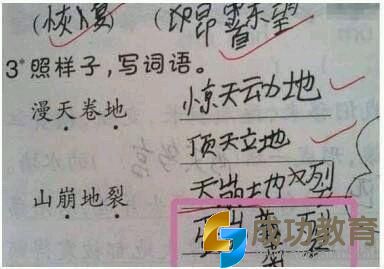 (恢复)
3*照样子，写词语。
惊天动地
漫天卷地
顶天立地
山崩地裂
天崩地裂
成功教育